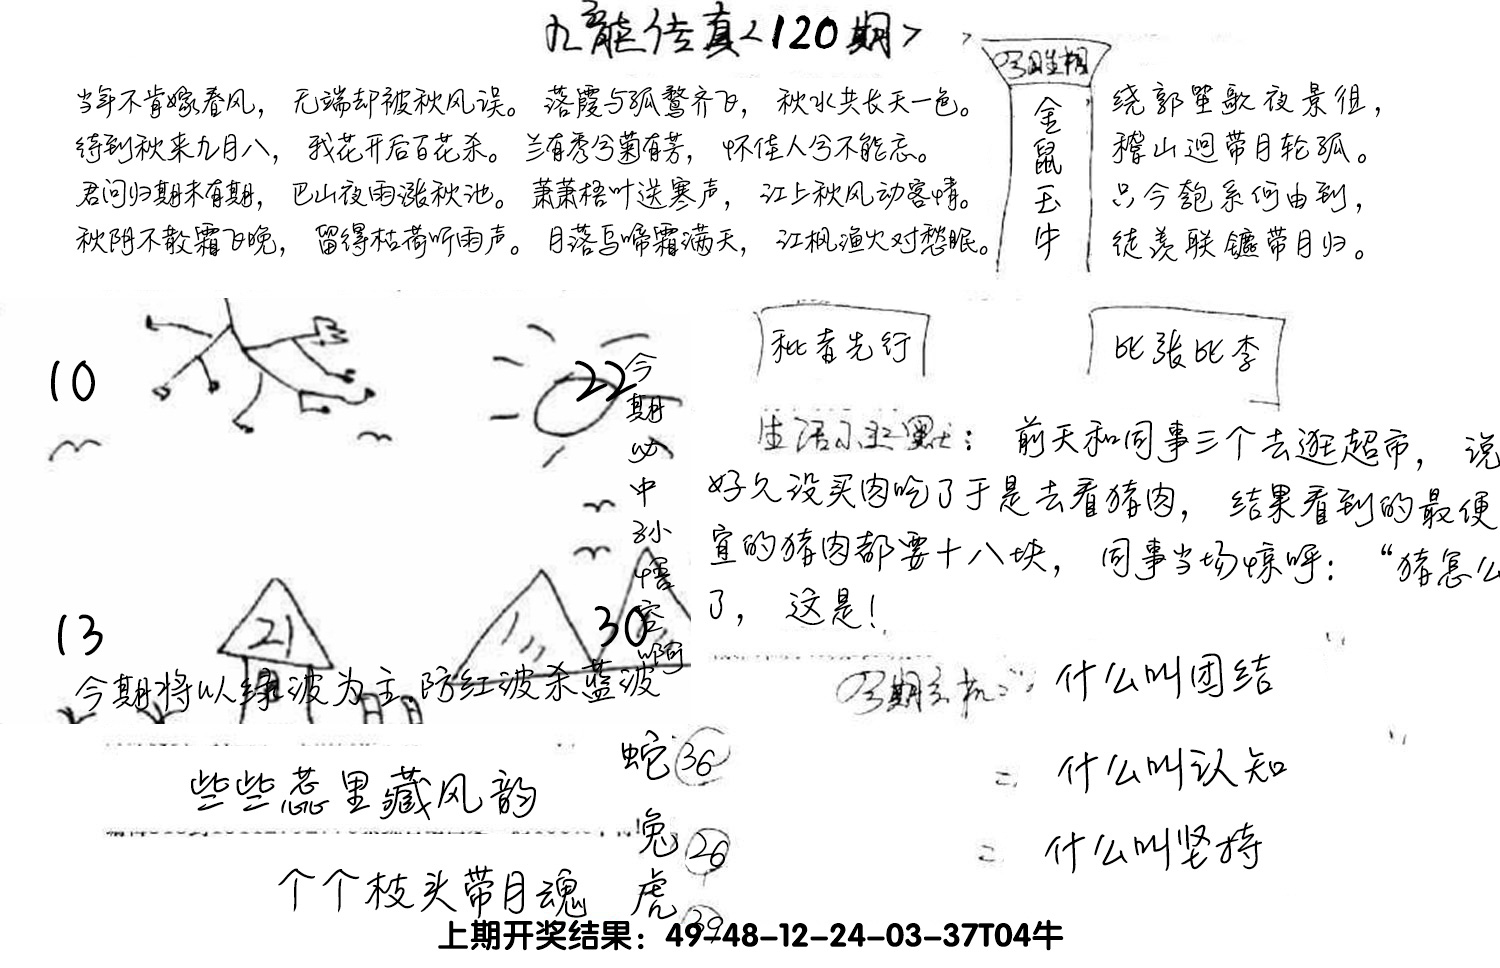 九龙传真<120期>
今日生相
金鼠玉牛
当年不肯嫁春风，无端却被秋风误。落霞与孤鹜齐飞，秋水共长天一色。
待到秋来九月八，我花开后百花杀。兰有秀兮菊有芳，怀佳人兮不能忘。
君问归期未有期，巴山夜雨涨秋池。萧萧梧叶送寒声，江上秋风动客情。
秋阴不散霜飞晚，留得枯荷听雨声。月落乌啼霜满天，江枫渔火对愁眠。
绕郭笙歌夜景徂，
稽山迥带月轮孤。
只今匏系何由到，
徒羡联镳带月归。
10
22
今期必中孙悟空啊
13
21
30
今期将以绿波为主防红波杀蓝波
秕者先行
比张比李
生活小幽默：前天和同事三个去逛超市，说
好久没买肉吃了于是去看猪肉，结果看到的最便
宜的猪肉都要十八块，同事当场惊呼：“猪怎么
了，这是！
今期玄机 什么叫团结
= 什么叫认知
= 什么叫坚持
些些蕊里藏风韵
个个枝头带月魂
蛇 36
兔 26
虎 39
上期开奖结果：49-48-12-24-03-37T04牛